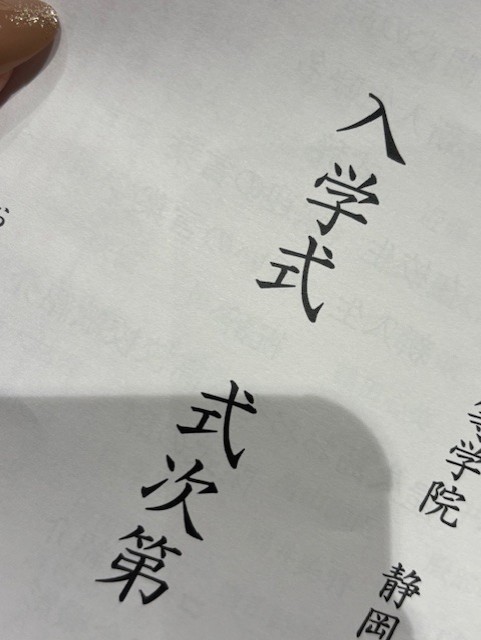 学院 静岡
入学式 式次第